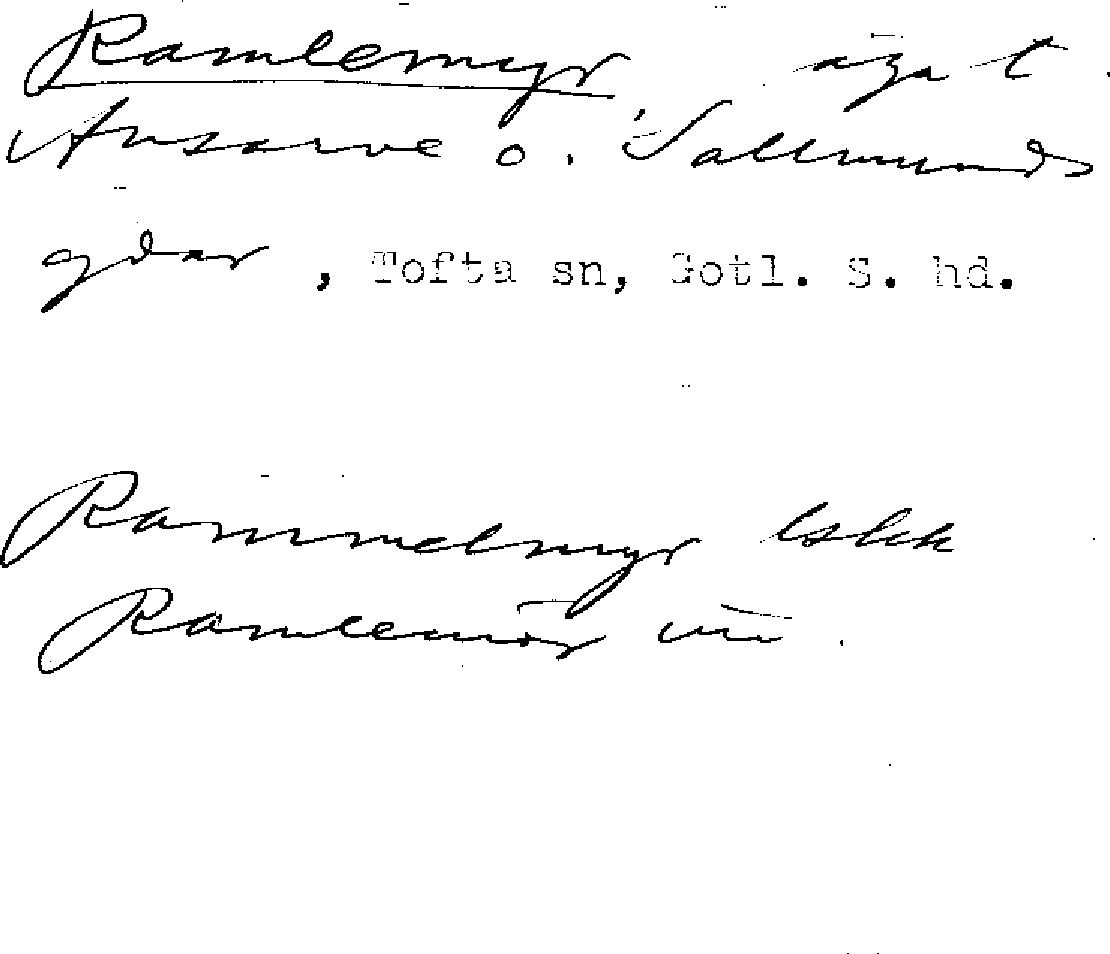 Ramlemyr äga t.
Ansarve o. Sallmunds
gdar, Tofta sn, Gotl. S. hd.
Rammelmyr
Ramlemör